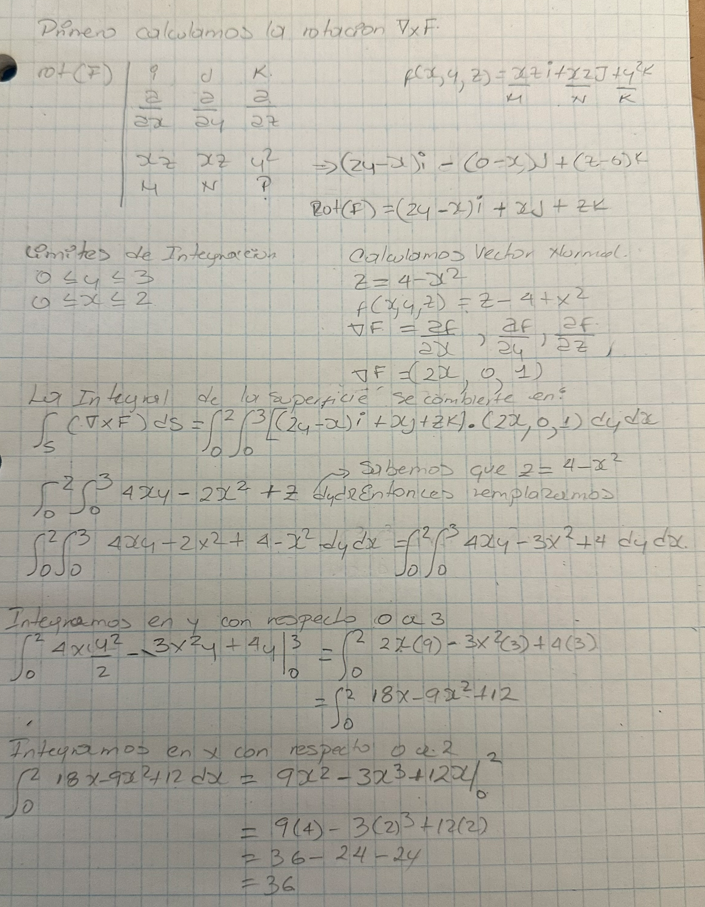 Primero calculamos la rotacion ∇×F.
rot(F) | i j k
∂/∂x ∂/∂y ∂/∂z
xz xz y²
M N P
f(x,y,z) = xzi + xzJ + y²K
M N K
⇒ (2y-x)i - (0-x)J + (z-0)K
Rot(F) = (2y-x)i + xJ + zK
Limites de Integracion
0 ≤ y ≤ 3
0 ≤ x ≤ 2
Calculamos Vector Normal.
z = 4-x²
f(x,y,z) = z-4+x²
∇F = ∂f/∂x, ∂f/∂y, ∂f/∂z,
∇F = (2x, 0, 1)
La Integral de la superficie se combierte en:
∫s (∇×F) ds = ∫₀² ∫₀³ [(2y-x)i + xj + zK). (2x,0,1) dydx
→ Sabemos que z = 4-x²
∫₀² ∫₀³ 4xy - 2x² + z dydx Entonces remplazamos
∫₀² ∫₀³ 4xy - 2x² + 4 - x² dydx = ∫₀² ∫₀³ 4xy - 3x² + 4 dydx.
Integramos en y con respecto 0 a 3
∫₀² 4xy²/2 - 3x²y + 4y |₀³ = ∫₀² 2x(9) - 3x²(3) + 4(3)
= ∫₀² 18x - 9x² + 12
Integramos en x con respecto 0 a 2
∫₀² 18x - 9x² + 12 dx = 9x² - 3x³ + 12x |₀²
= 9(4) - 3(2)³ + 12(2)
= 36 - 24 - 24
= 36